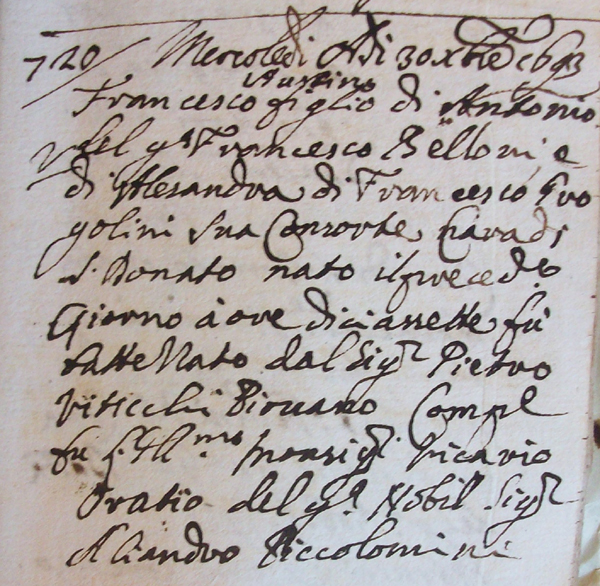 720/ Mercoledi Adi 30 xbre 1693
Austino
Francesco figlio di Antonio
del qm Francesco Belloni e
di Alesandra di Francesco Gro
golini sua Consorte Cura di
S. Donato nato il preced.te
Giorno à ore diciassette fù
Battezzato dal Sigr Pietro
Piovano Compe
fu l'Ill.mo Monsigr Vicario
Oratio del qm Nobil Sigr
Alisandro Piccolomini